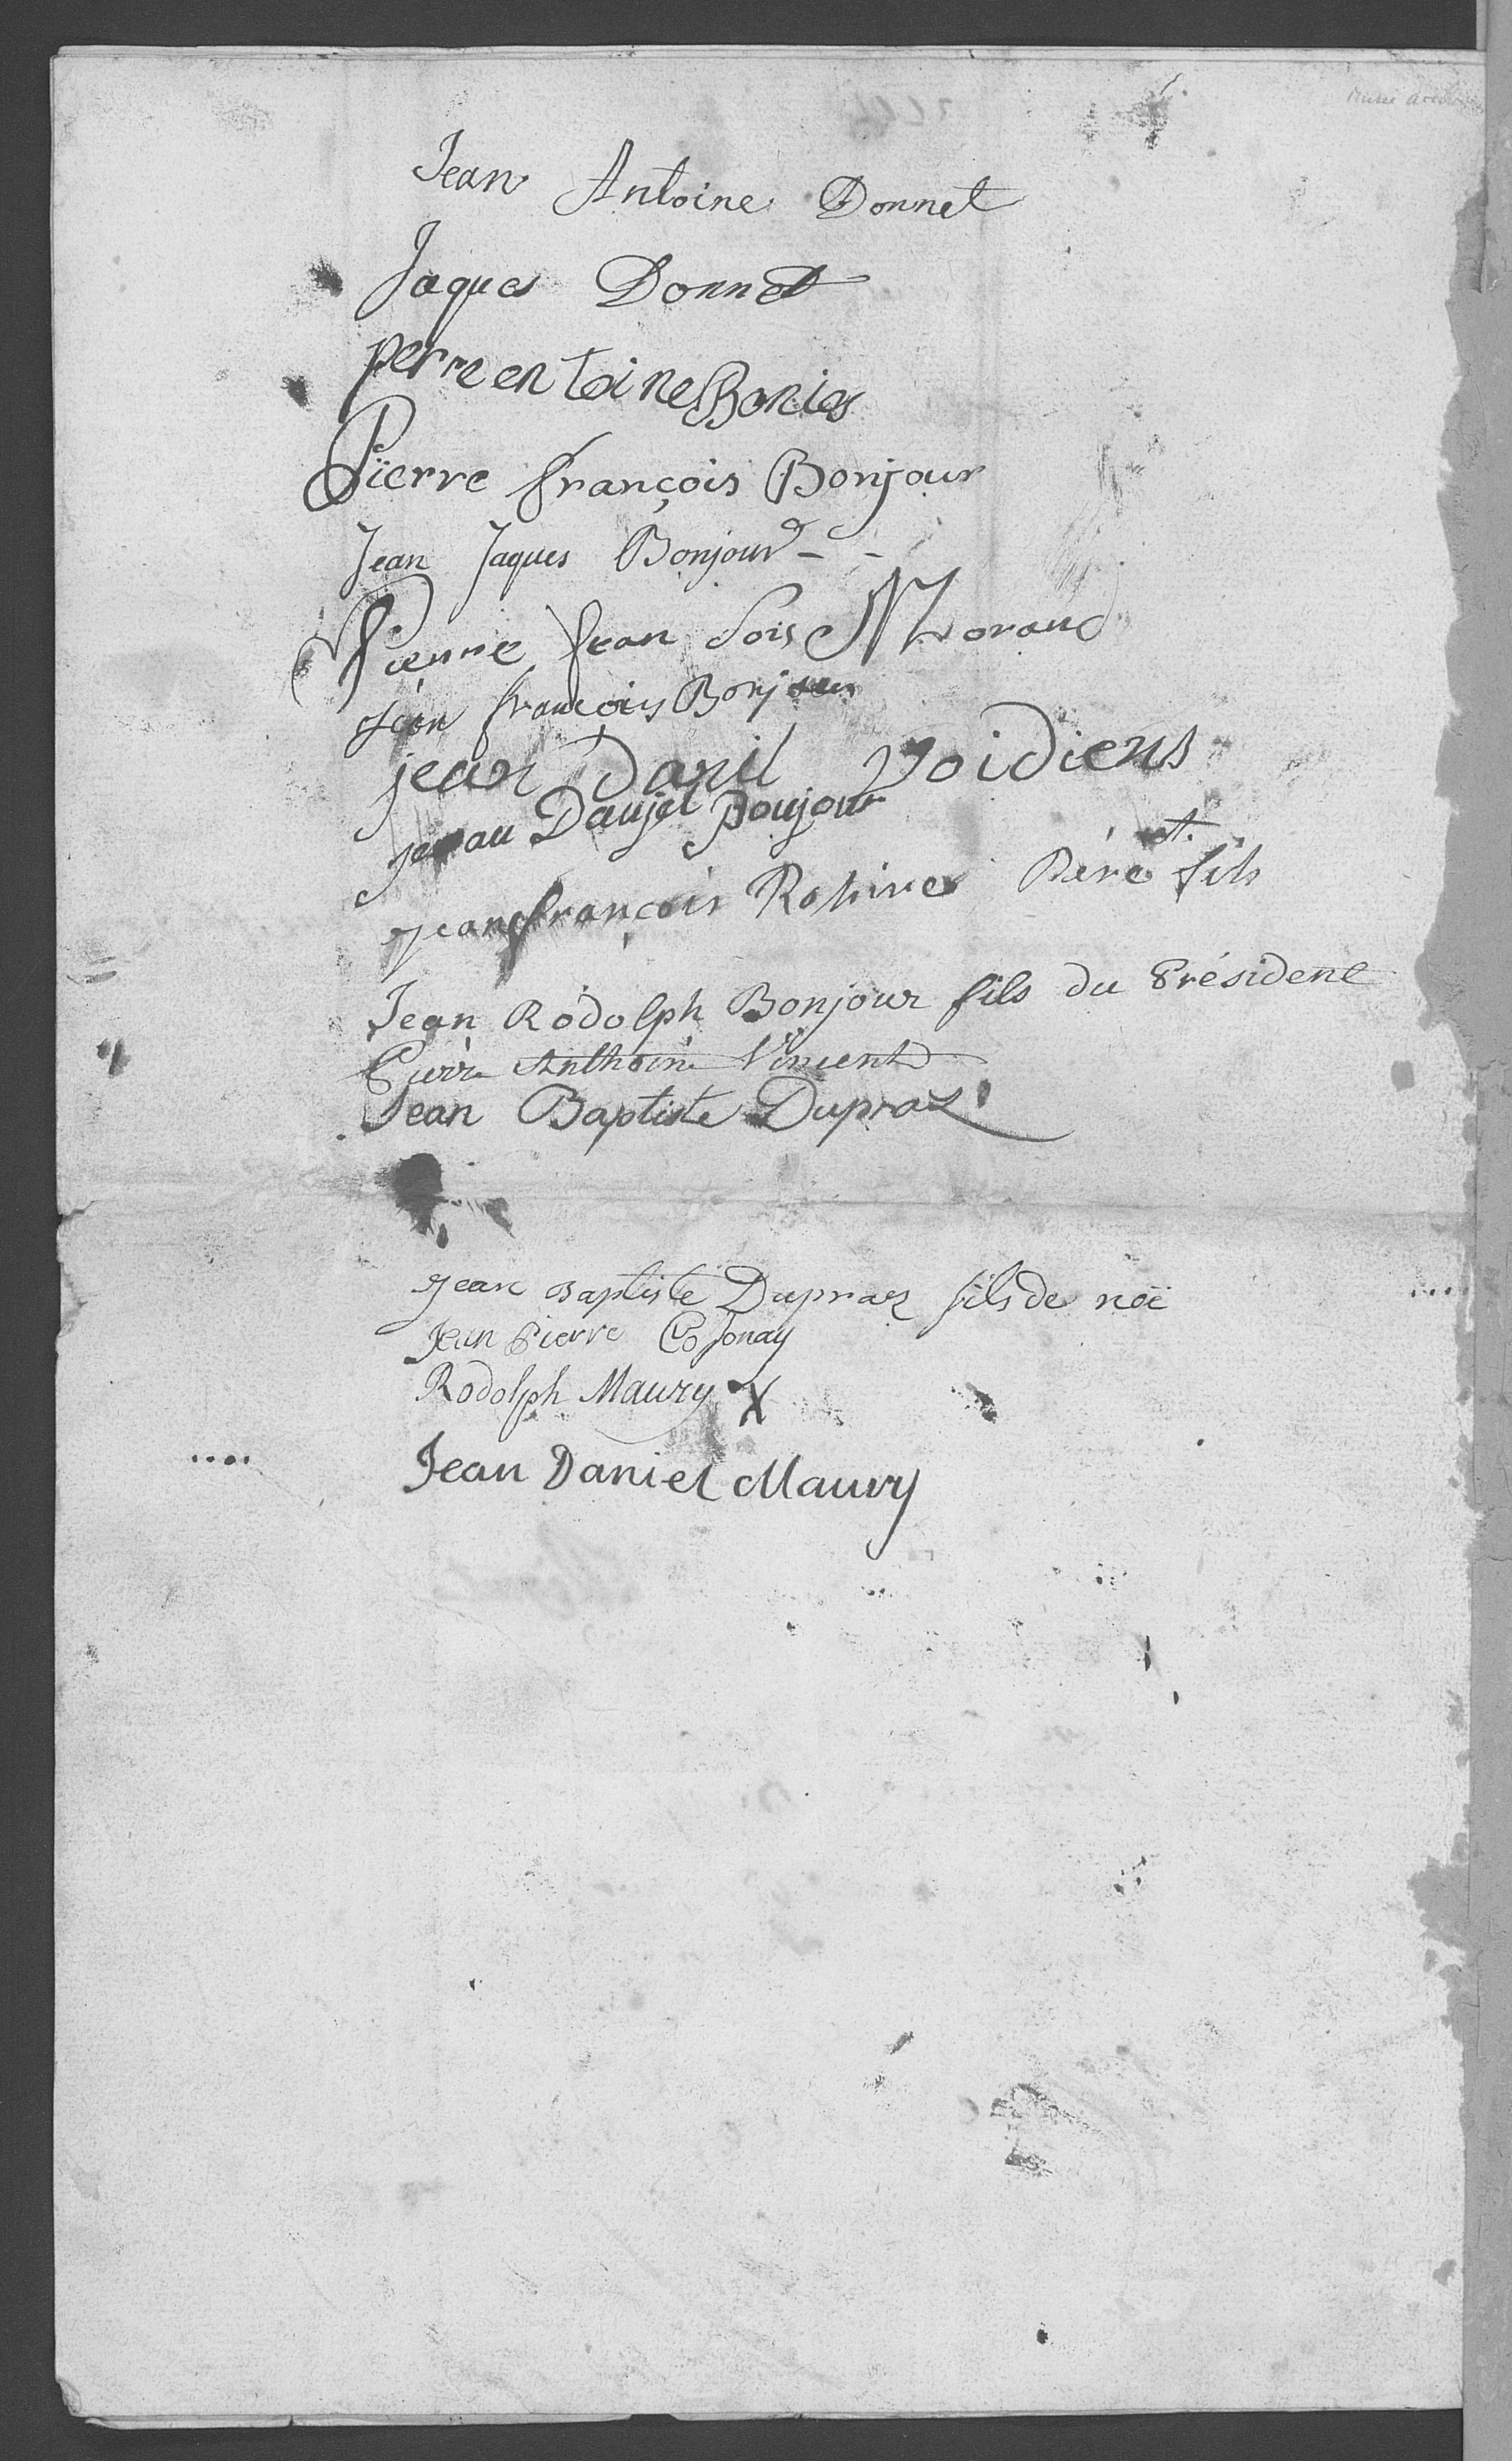 Jean Antoine Donnet
Jaques Donnet
perre en toine
Pierre françois Bonjour
Jean Jaques Bonjour
Pierre Jean Lois Morand
Jean francois Bonjour
jean Danil
jean Daujel Boujour
Jean françois Père et fils
Jean Rodolph Bonjour fils du Président
Pierre Anthoine Vincent
Jean Baptiste Dupraz
Jean Baptiste Dupraz fils de noë
Jean Pierre Cosonay
Rodolph Maury X
Jean Daniel Maury